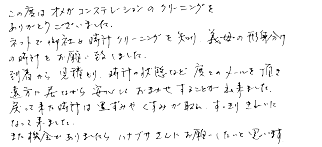 この度はオメガコンステレションのクリーニングを
ありがとうございました。
ネットで御社と時計クリーニングを知り 義母の形見分け
の時計をお願い致しました。
到着から見積もり、時計の状態など度々のメールを頂き
遠方に居ながら安心しておまかせすることが出来ました。
戻って来た時計は黒ずみやくすみが取れ、すっきりきれいに
なって来ました。
また機会がありましたらハナブサさんにお願いしたいと思います